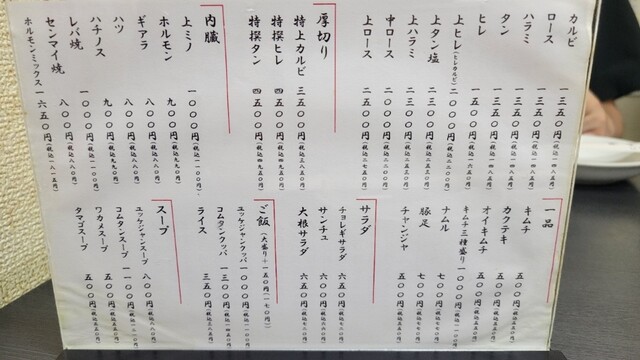 カルビ 一三五〇円(税込一四八五円)
ロース 一三五〇円(税込一四八五円)
ハラミ 一三五〇円(税込一四八五円)
タン 一三五〇円(税込一四八五円)
ヒレ 一五〇〇円
上ヒレ(ヒレカルビ) 二〇〇〇円(税込二二〇〇円)
上タン塩 二三〇〇円(税込二五三〇円)
上ハラミ 二三〇〇円(税込二五三〇円)
中ロース 二〇〇〇円(税込二二〇〇円)
上ロース 二五〇〇円(税込二七五〇円)
厚切り
特上カルビ 三五〇〇円(税込三八五〇円)
特撰ヒレ 四五〇〇円(税込四九五〇円)
特撰タン 四五〇〇円(税込四九五〇円)
内臓
上ミノ 一〇〇〇円(税込一一〇〇円)
ホルモン 九〇〇円(税込九九〇円)
ギアラ 八〇〇円(税込八八〇円)
ハツ 八〇〇円(税込八八〇円)
ハチノス 九〇〇円(税込九九〇円)
レバ焼 一〇〇〇円(税込一一〇〇円)
センマイ焼 八〇〇円(税込八八〇円)
ホルモンミックス 一六五〇円(税込一八一五円)
一品
キムチ 五〇〇円(税込五五〇円)
カクテキ 五〇〇円(税込五五〇円)
オイキムチ 五〇〇円(税込五五〇円)
キムチ三種盛り 一〇〇〇円(税込一一〇〇円)
ナムル 七〇〇円(税込七七〇円)
豚足 七〇〇円(税込七七〇円)
チャンジャ 五〇〇円(税込五五〇円)
サラダ
チョレギサラダ 六五〇円(税込七一五円)
サンチュ 六〇〇円(税込六六〇円)
大根サラダ 六五〇円(税込七一五円)
ご飯(大盛り+一五〇円(一七〇円))
ユッケジャンクッパ 一〇〇〇円(税込一一〇〇円)
コムタンクッパ 一三〇〇円(税込一四三〇円)
ライス 三五〇円(税込三八五円)
スープ
ユッケジャンスープ 八〇〇円(税込八八〇円)
コムタンスープ 一一〇〇円
ワカメスープ 五〇〇円(税込五五〇円)
タマゴスープ 五〇〇円(税込五五〇円)